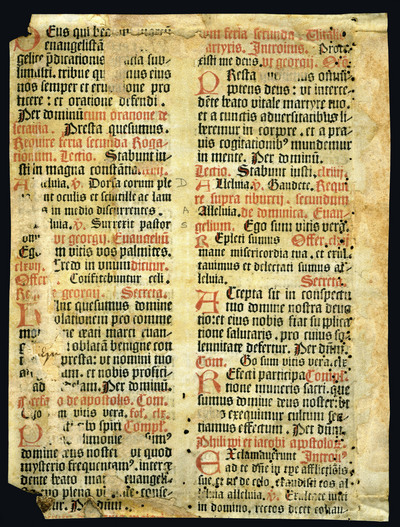 Eus qui bea
euangelistā
gelice p̄dicationis acia sub-
limasti. tribue q̄ cuius eius
nos semper et eru one pro
ficere: et oratione defendi.
Per dominū cum oratione de
letania. Presta quesumus.
Require feria secunda Roga
tionum. Lectio. Stabunt iu
sti in magna constātia.
leluia. v̄. Dorsa eorum ple
nt oculis et scintille ac lam
s in medio discurrentes.
eluia. v̄. Surrexit pastor
ony vt georgij. Euangeliū
Eg m vitis vos palmites.
Credo in vnum dicitur.
Offer Confitebuntur celi.
R georgij. Secreta.
Huc quesumus domine
oblationem pro comme
mo rati marci euan-
oblatā benigne con
presta: vt nomini tuo
um. et nobis profici-
ad lam. Per dominū.
Prefa o de apostolis. Com.
go m vitis vera. fo. clx.
P spiri Compl.
dimonie sim⁹
domine eus noster vt quod
mysterio frequentam⁹. interce
dente beato mar euangeli-
gno plena vi te conse-
ur. Per dm̄.
um feria secunda. Vitalis
martyris. Introitus. Prote
xisti me deus. vt georgij. Or̄o.
Presta oīpo
potens deus: vt interce-
dēte beato vitale martyre tuo.
et a cunctis aduersitatibus li-
beremur in corpore. et a pra-
uis cogitationib⁹ mundemur
in mente. Per dominū.
Lectio. Stabunt iusti. clxiij.
Alleluia. v̄. Gaudete. Requi
re supra tiburcij. secundum
Alleluia. de dominica. Euan-
gelium. Ego sum vitis vera.
Repleti sumus Offer. clxij.
mane misericordia tua. et exul
tauimus et delectati sumus al-
leluia. Secreta.
Accepta sit in conspectu
tuo domine nostra deuo
tio: et eius nobis fiat supplica
tione salutaris. pro cuius so-
lennitate defertur. Per dn̄m.
Com. Go sum vitis vera. clx
Refecti participa Compl.
tione muneris sacri. que
sumus domine deus noster: vt
exequimur cultum sen-
tiamus effectum. Per dn̄m.
Philippi et iacobi apostoloR.
Exclamauerunt Introit⁹
ad te dn̄e in tpe afflictiōis
sue. et tu de celo. exaudisti eos al
leluia alleluia. v̄. Exultate iusti
in domino. rectos decet collau-